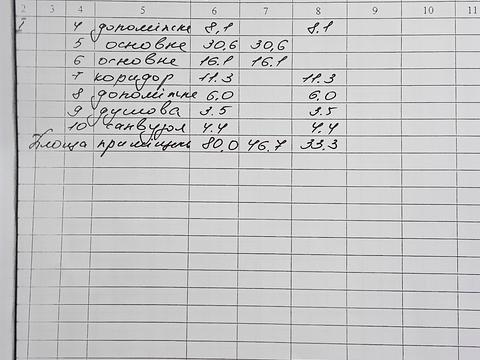 2 3 4 5 6 7 8 9 10 11
I 4 допоміжне 8,1 8.1
5 основне 30,6 30,6
6 основне 16.1 16.1
7 коридор 11.3 11.3
8 допоміжне 6.0 6.0
9 душова 3.5 3.5
10 санвузол 4.4 4.4
Площа приміщень 80.0 46.7 33.3